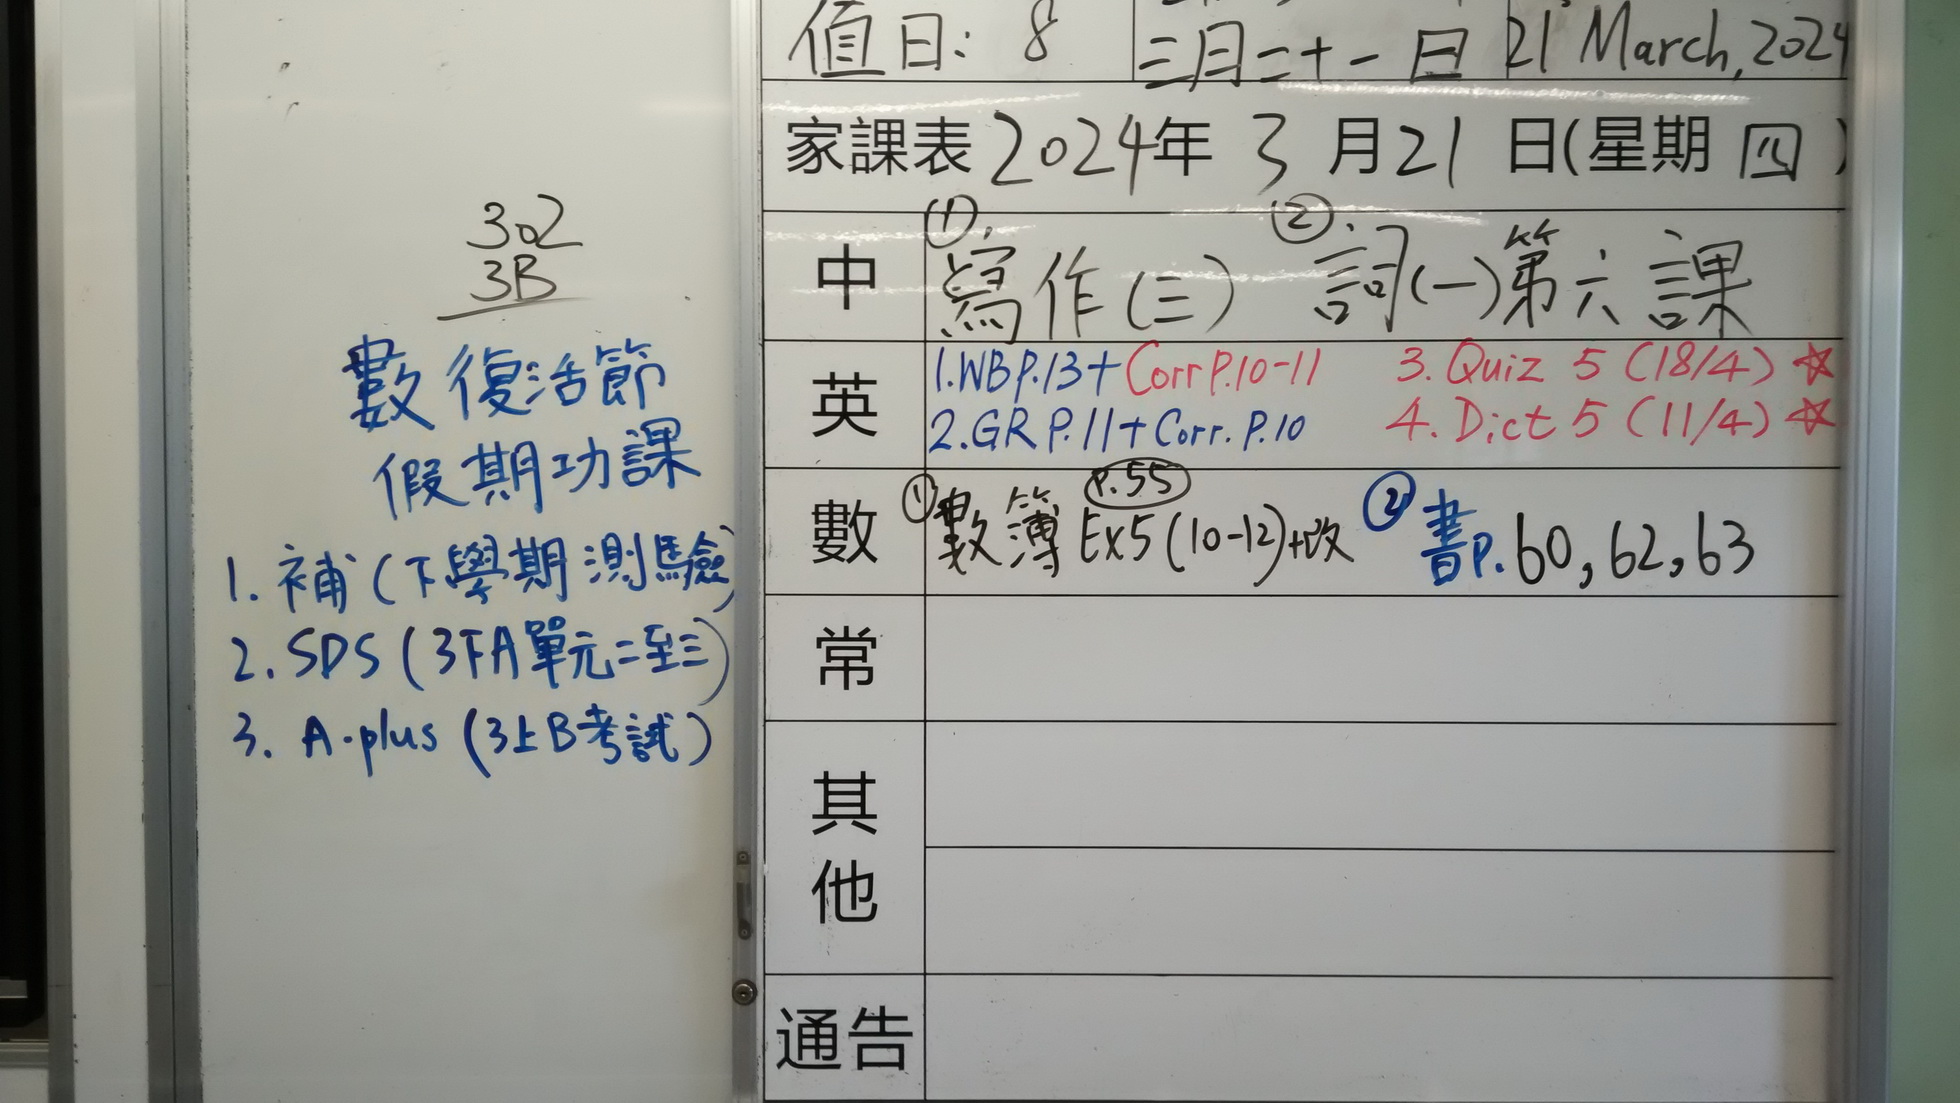 302
3B
數復活節
假期功課
1. 補(下學期測驗)
2. SDS (3下A單元二至三)
3. A-plus (3上B考試)
值日: 8 三月二十一日 21 March, 2024
家課表 2024年 3 月 21 日(星期 四 )
中 ① 寫作(三) ② 詞(一)第六課
英 1. WB P.13 + Corr P.10-11 3. Quiz 5 (18/4) ☆
2. GR P.11 + Corr. P.10 4. Dict 5 (11/4) ☆
數 ① 數簿 P.55 Ex5 (10-12)+改 ② 書P. 60, 62, 63
常
其他
通告